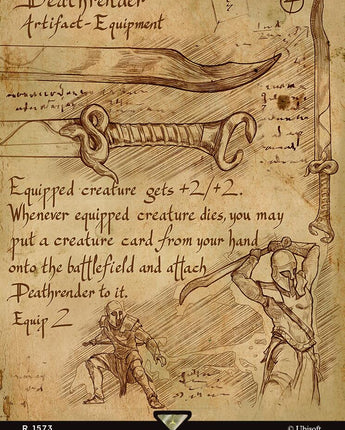 Deathrender
Artifact-Equipment
4
Equipped creature gets +2/+2.
Whenever equipped creature dies, you may
put a creature card from your hand
onto the battlefield and attach
Deathrender to it.
Equip 2
R 1573
© Ubisoft